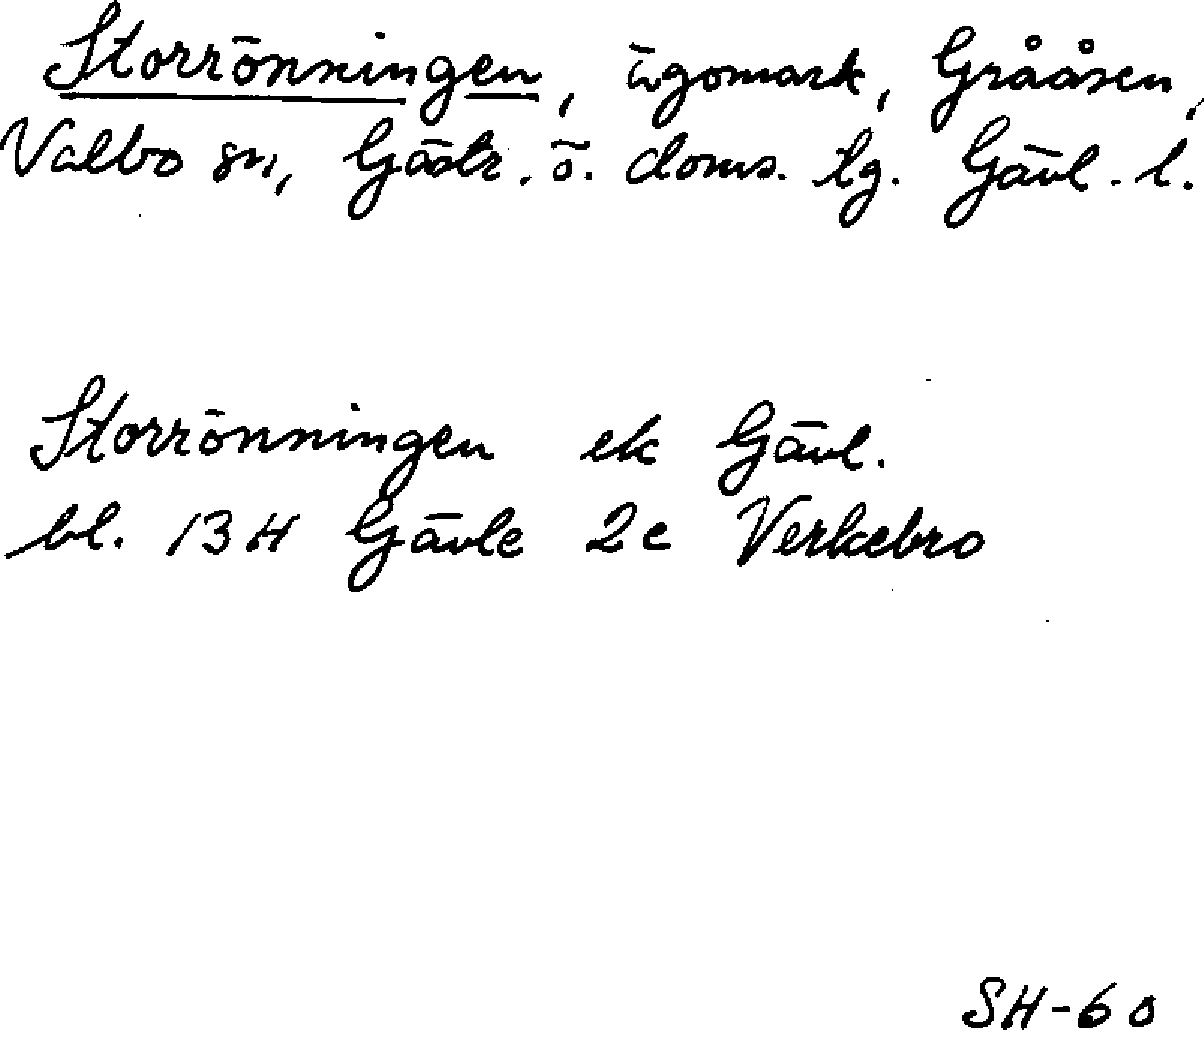 Storrönningen, ägomark, Grååsen,
Valbo sn, Gästr. ö. doms. lg. Gävl. l.
Storrönningen ek Gävl.
bl. 13H Gävle 2c Verkebro
SH-60